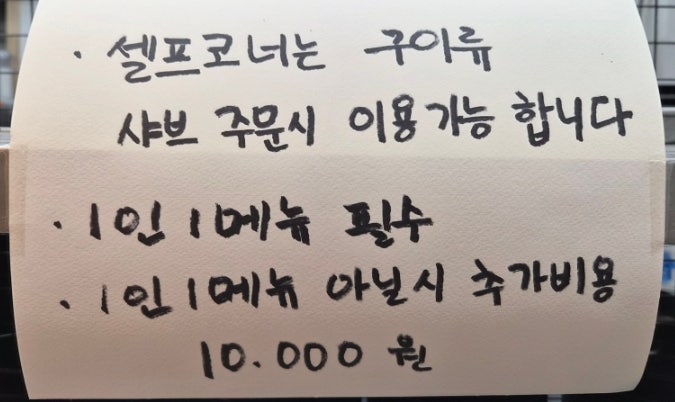 · 셀프코너는 구이류
샤브 주문시 이용가능 합니다
· 1인 1메뉴 필수
· 1인 1메뉴 아닐시 추가비용
10.000 원